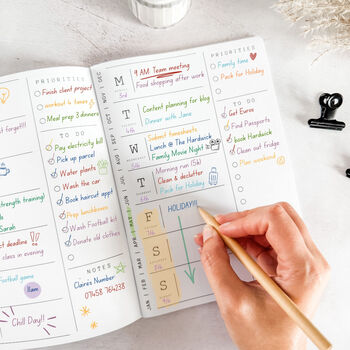 t forget!!!
strength training)
est deadline
class in evening
ootball game
11am
Chill Day!!
PRIORITIES
Finish client project
workout 4 times
Meal prep 3 dinners
TO DO
Pay electricity bill
Pick up parcel
Water plants
Wash the car
Book haircut appt
Prep lunchboxes
Wash Football kit
Donate old clothes
NOTES
Claires Number
07458 764238
M
3rd
9 AM Team meeting
Food shopping after work
T
4th
Content planning for blog
Dinner with Jane
W
5th
Submit timesheets
Lunch @ The Hardwick
Family Movie Night
T
6th
Morning run (5k)
Clean & declutter
Pack for Holiday
F
7th
HOLIDAY!!
S
8th
S
9th
PRIORITIES
Family time
Pack for Holiday
TO DO
Get Euros
Find Passports
book Hardwick
Clean out fridge
Plan weekend